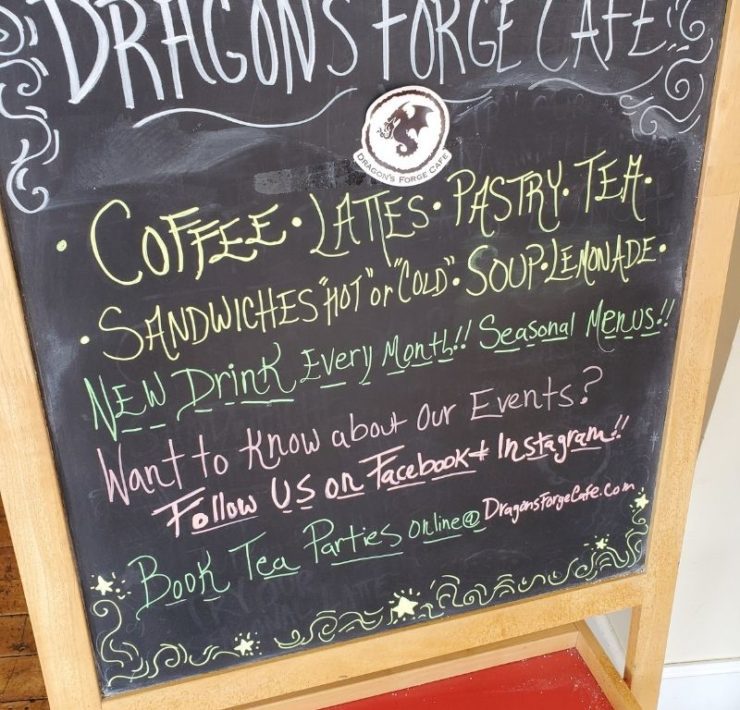 DRAGONS FORGE CAFE
DRAGON'S FORGE CAFE
• COFFEE • LATTES • PASTRY • TEA •
• SANDWICHES "HOT" or "COLD" • SOUP • LEMONADE •
NEW Drink Every Month!! Seasonal Menus!!
Want to Know about Our Events?
Follow US on Facebook + Instagram!!
Book Tea Parties online @ DragonsForgeCafe.com